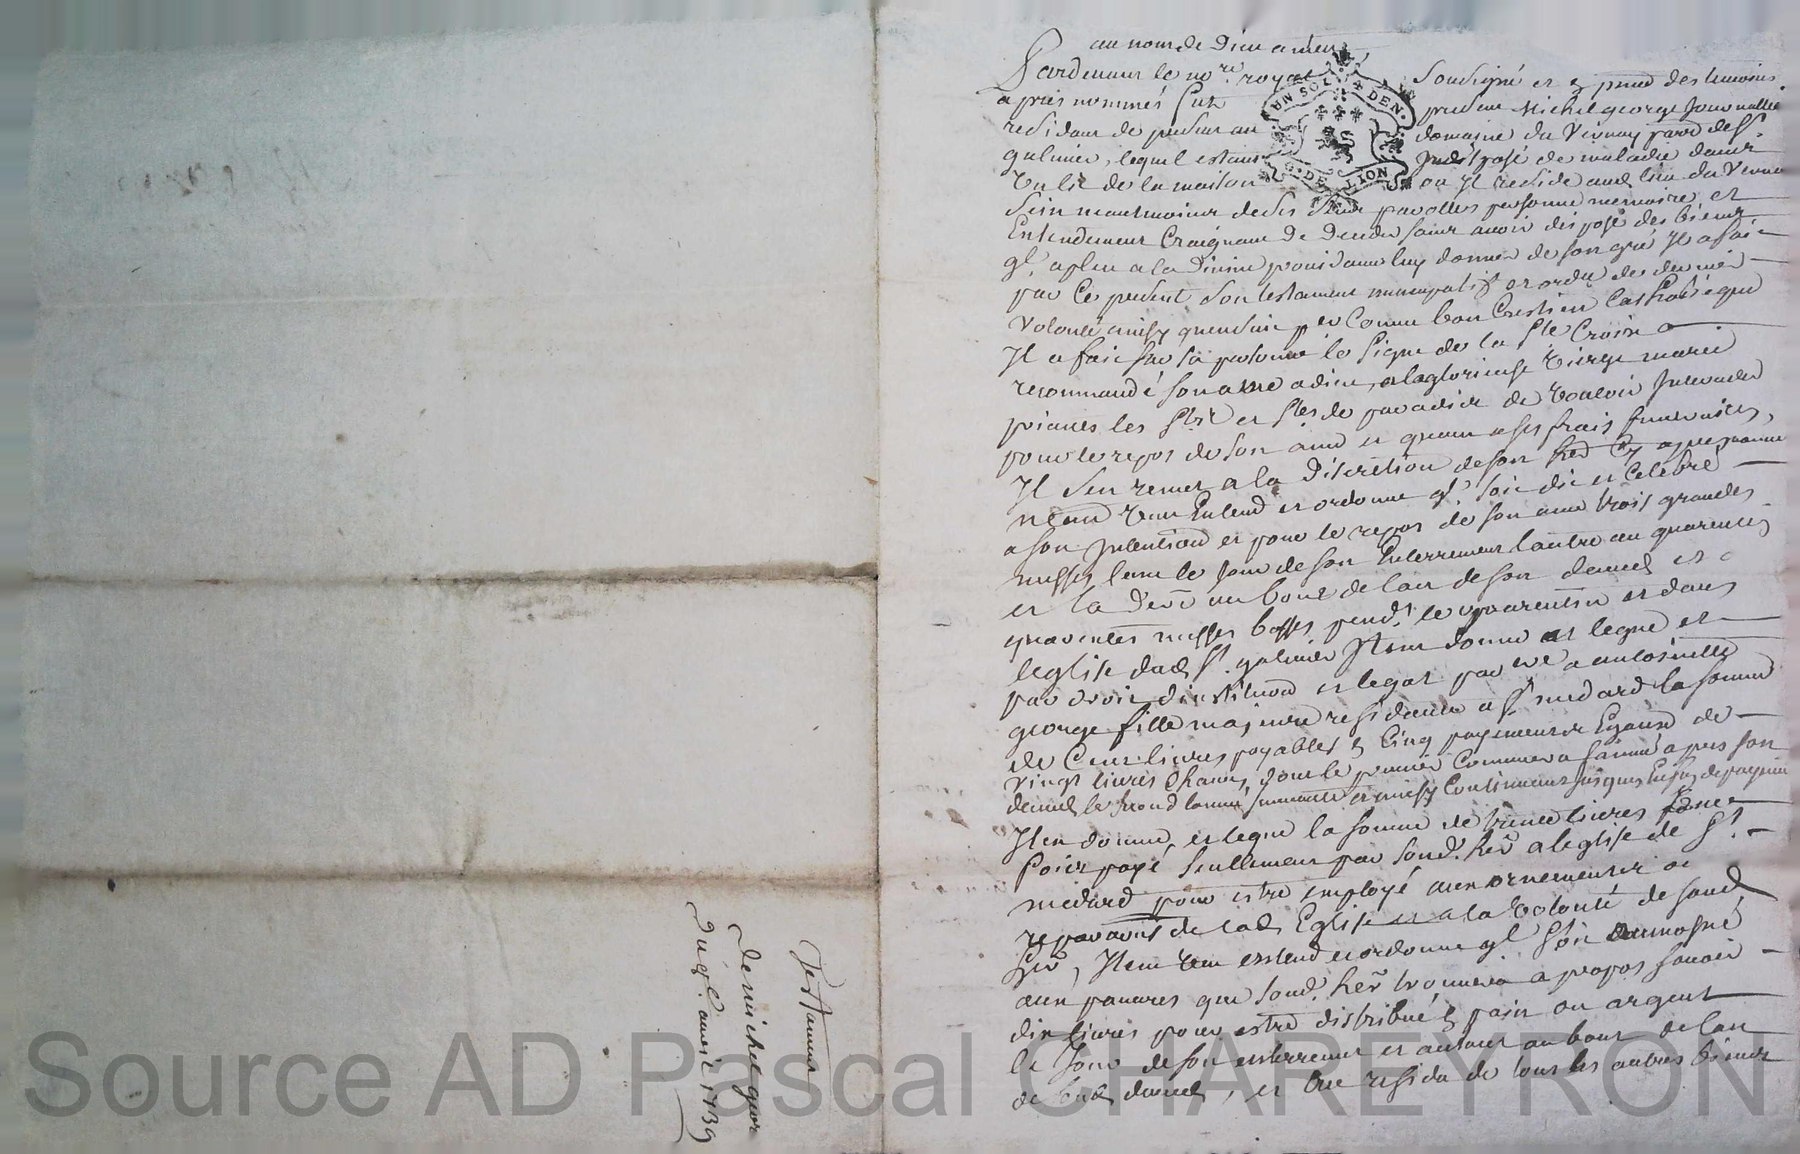 au nom de Dieu amen
Pardevant le no.re royal soussigné et
apres nommés fut present Michel george Journallier
residant de present au domaine du Vernay parr. de S.t
galmier, lequel estant Indisposé de maladie dans
un lit de la maison ou Il reside aud. lieu du Vernay
sain neantmoins de ses sens parolles personne memoire et
Entendement Craignant de deceder sans avoir disposé des biens
ql. a plu a la Divine providance luy donner de son gré Il a fait
par Ce present son testament nuncupatif et ord.e de derniere
volonté ainsy quensuit p.er Comme bon Crestien Catholique
Il a fait sur sa personne le signe de la S.te Croix
recommandé son ame a dieu, a la glorieuse Vierge marie
priant les S.ts et S.tes de paradis de vouloir Interceder
pour le repos de son ame et quant a ses frais funeraires,
Il sen remet a la Discretion de son her. cy apres nommé
neanm. veut Entend et ordonne ql. soit dit et Celebré
a son Intention et pour le repos de son ame trois grandes
messes lune le Jour de son Enterrement lautre au quarantin
et la Der.e au bout de lan de son deceds et
quarantes messes basses pend.t le quarantin et dans
leglise dud. S.t galmier Item donne et legue et
par droit dinstitution et legat par.re a antoinette
george fille majeure residante a S.t medard la somme
de Cent livres payables en Cinq payements Egaux de
vingt livres Chacun, dont le premier Commencera lannée apres son
deceds le second lannée suivante et ainsy Continuant jusques Enfin de payement
Item donne et legue la somme de trente livres
poier payé seullement par sond. her. a leglise de S.t
medard pour estre employé aux ornements ou
reparations de lad. Eglise et a la volonté de sond.
her., Item veut entend et ordonne ql soit aumosné
aux pauvres que sond. her. trouvera a propos savoir
dix livres pour estre distribué en pain ou argent
le Jour de son enterrement et autant au bout de lan
de sond. deceds, et au residu de tous les autres biens
Testament
de michel geor
ge du 2.e avril 1739
Source AD Pascal CHAREYRON
UN SOL 4 DEN.
G. DE LION